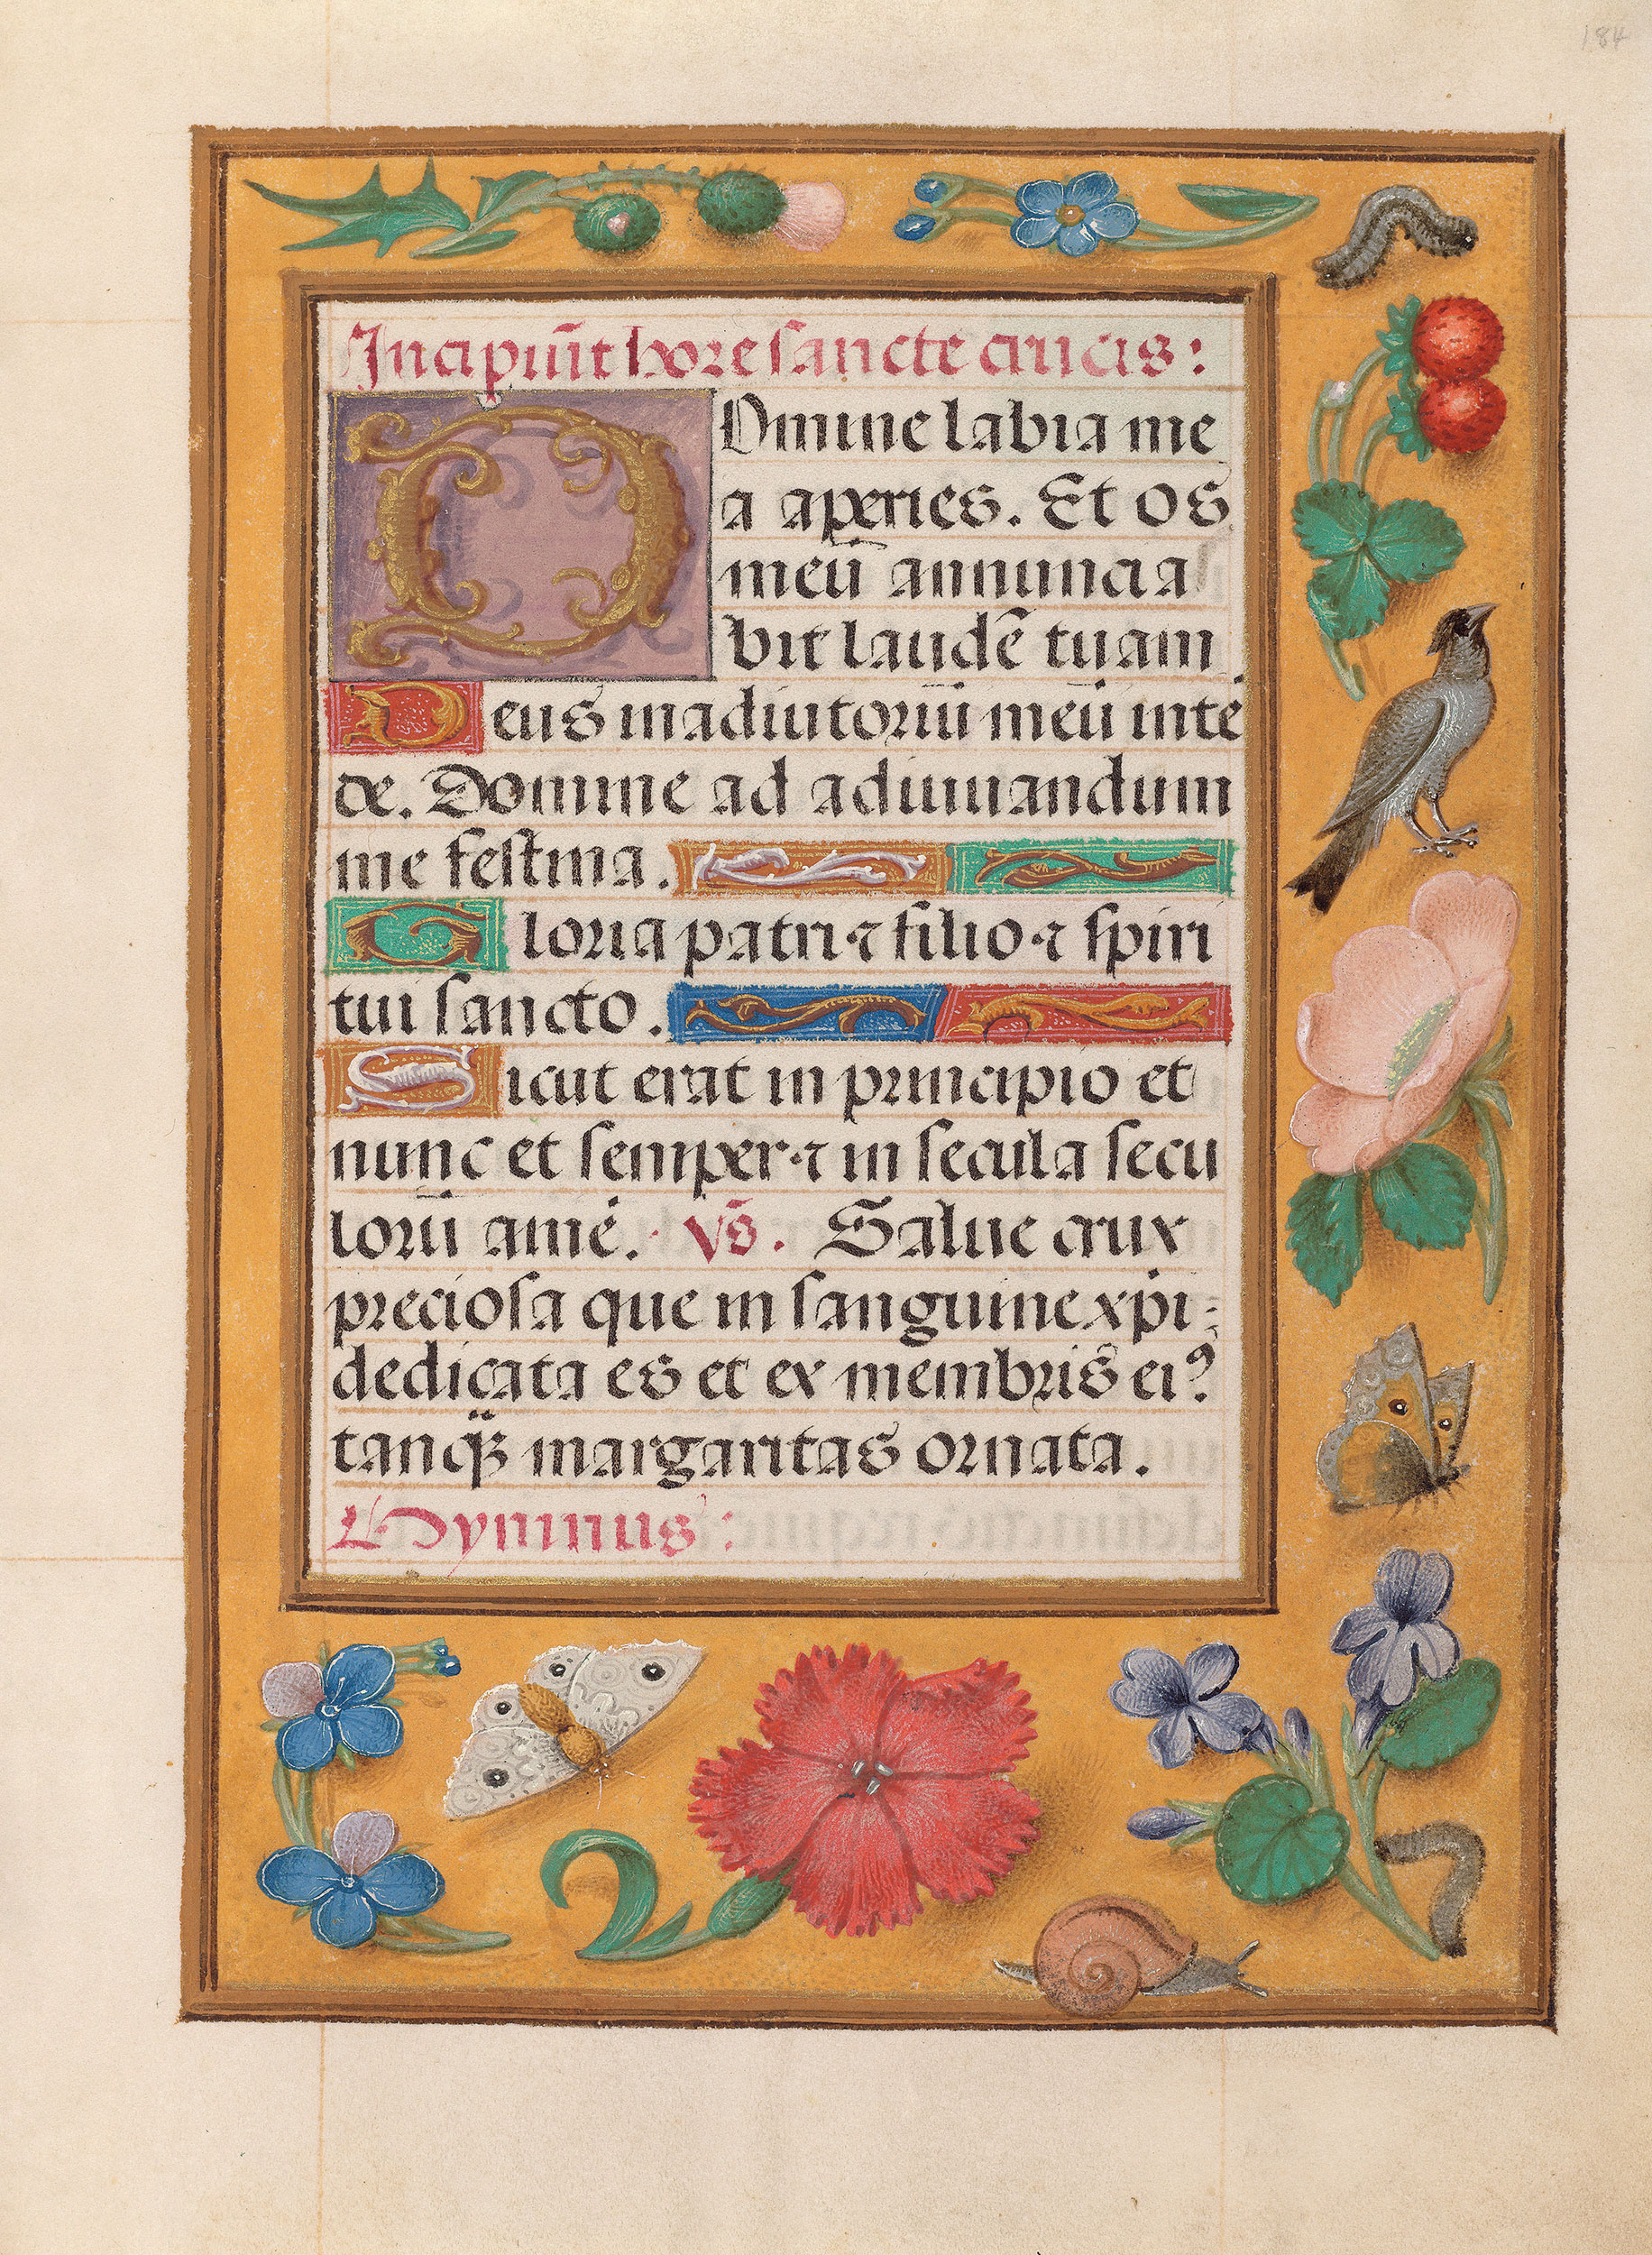 184
Incipiūt hore sancte crucis:
DOmine labia me
a aperies. Et os
meū annuncia
bit laudē tuam
Deus in adiutoriū meūintē
de. Domine ad adiuuandum
me festina.
Gloria patri ⁊ filio ⁊ spiri
tui sancto.
Sicut erat in principio et
nunc et semper ⁊ in secula secu
lorū amē. Vs̄. Salue crux
preciosa que in sanguine xpi
dedicata es et ex membris eiꝰ
tanqꝫ margaritas ornata.
Hymnus: